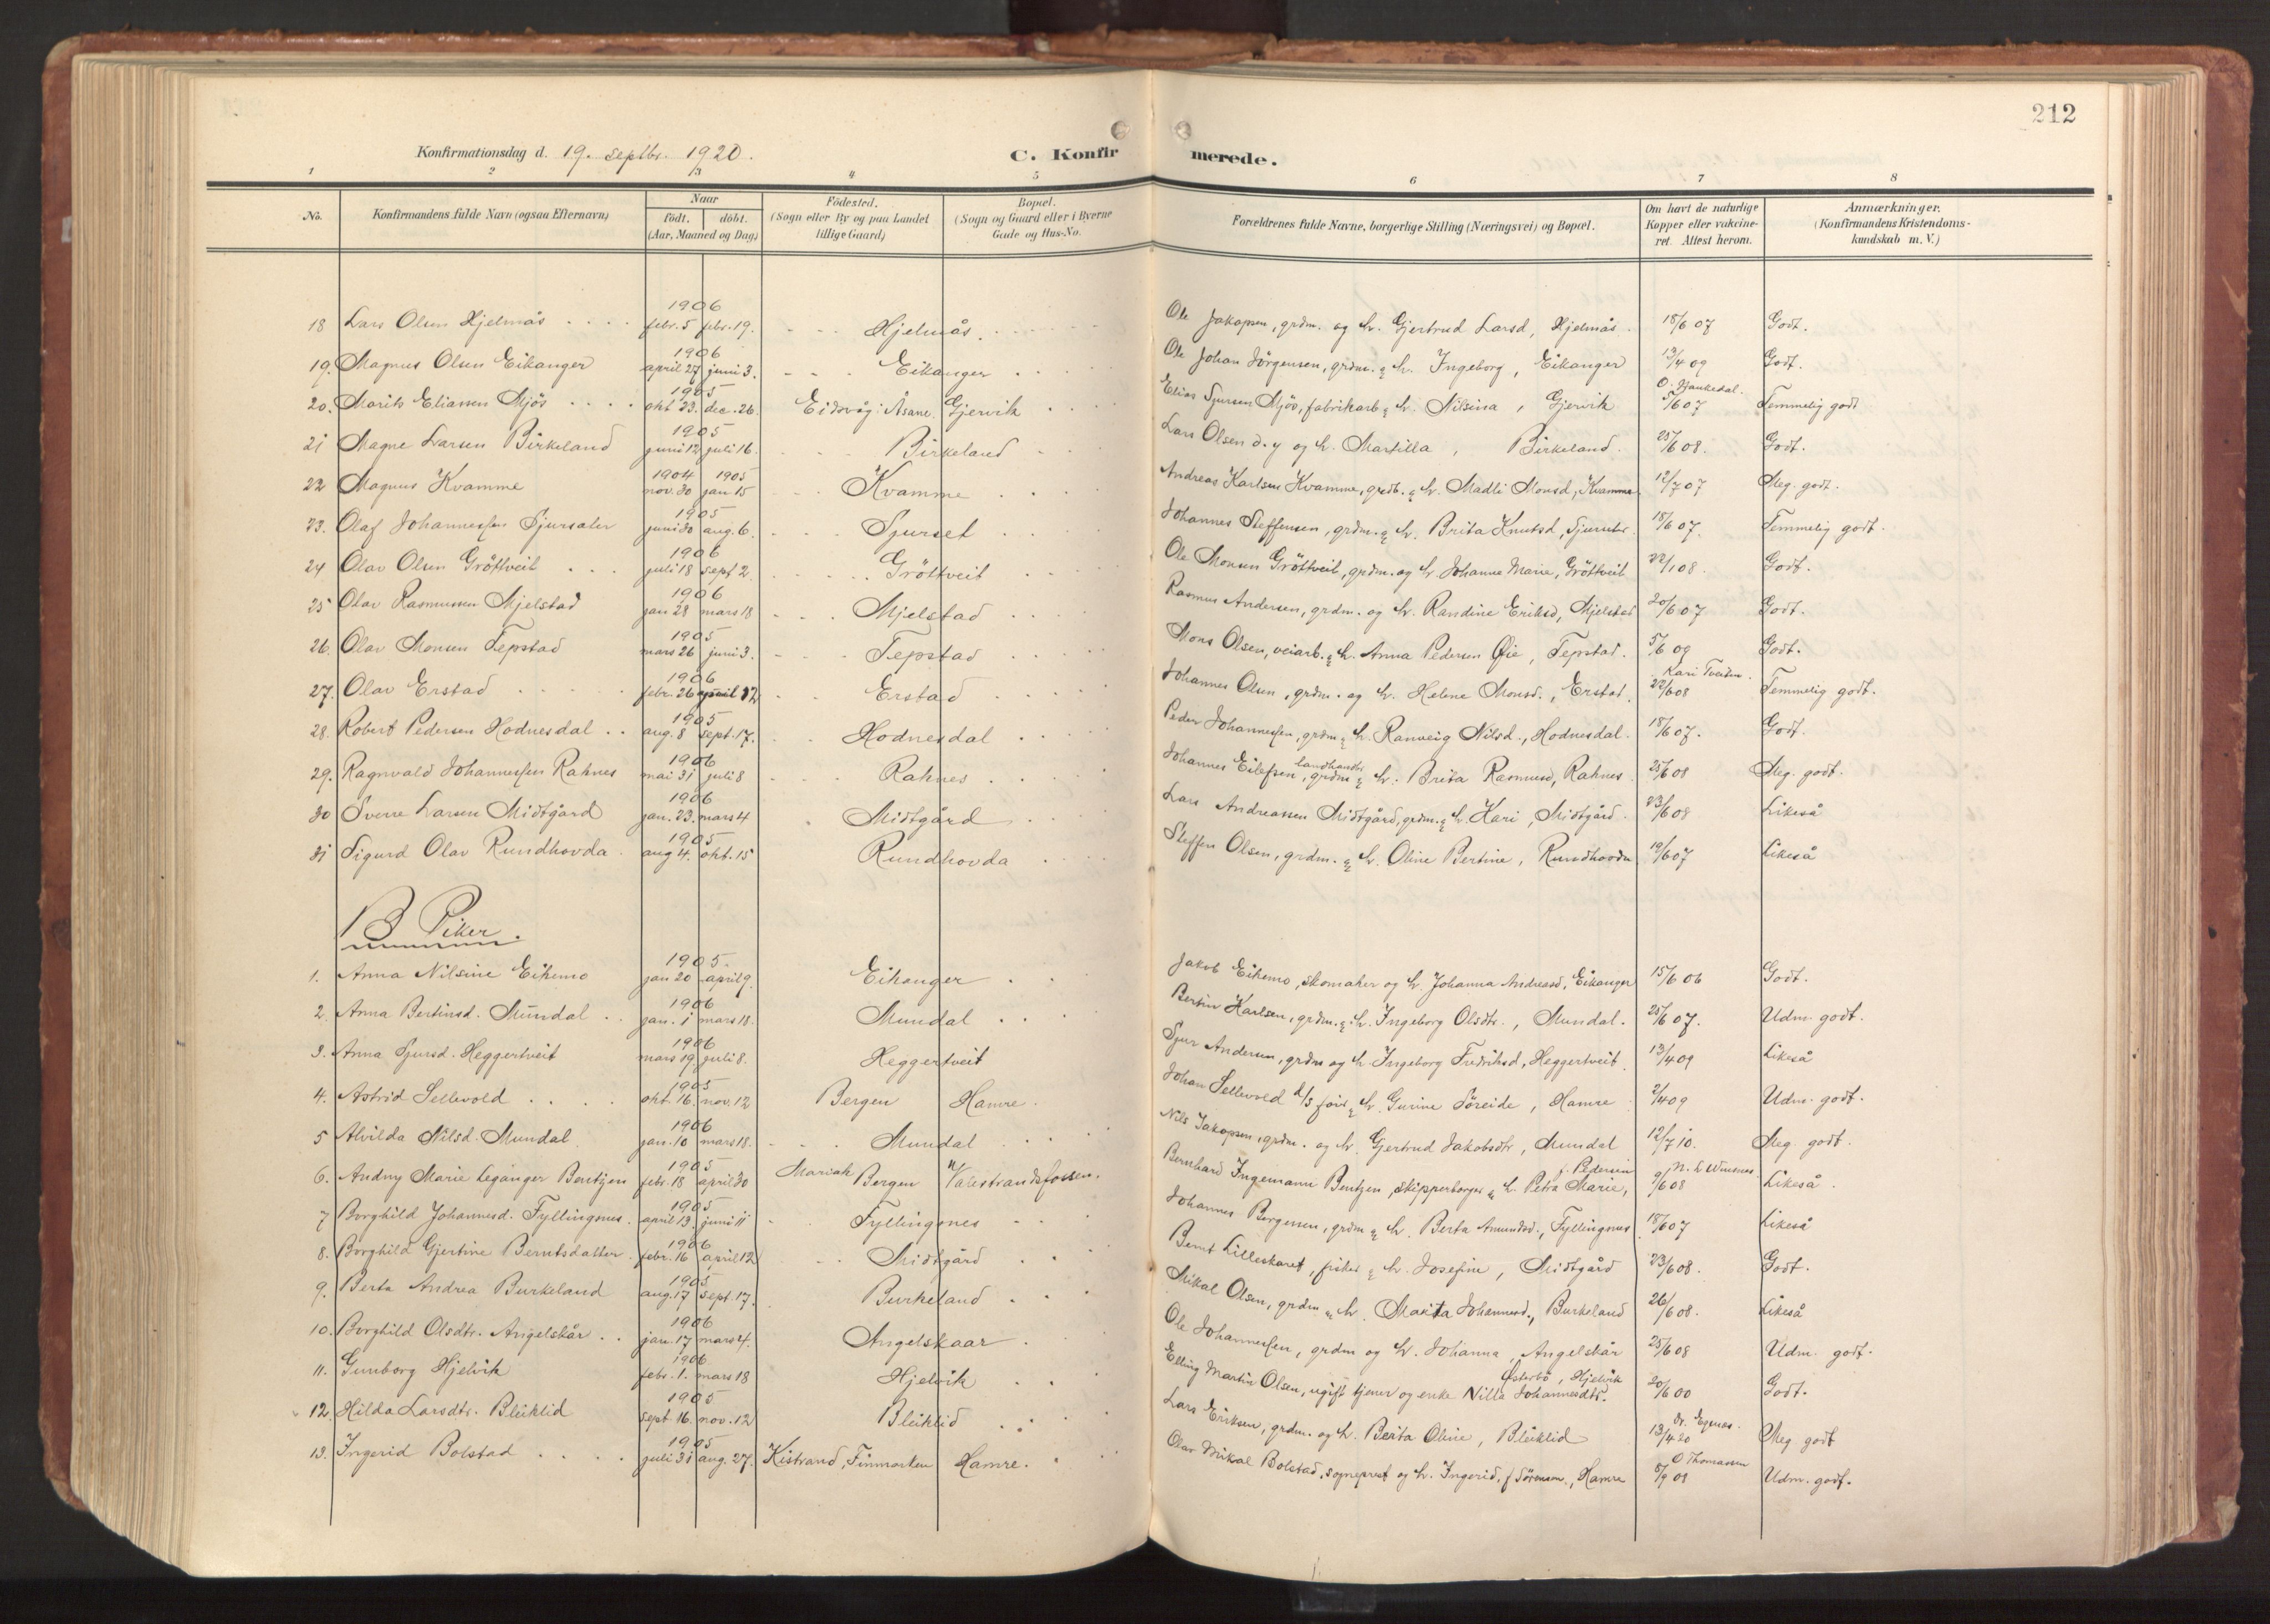 212
Konfirmationsdag d. 19. septbr. 1920.
C. Konfirmerede.
1 2 3 4 5 6 7 8
No. Konfirmandens fulde Navn (ogsaa Efternavn) Naar födt. döbt. (Aar, Maaned og Dag) Födested. (Sogn eller By og paa Landet tillige Gaard) Bopæl. (Sogn og Gaard eller i Byerne Gade og Hus-No. Forældrenes fulde Navne, borgerlige Stilling (Næringsvei) og Bopæl. Om havt de naturlige Kopper eller vakcineret. Attest herom. Anmærkninger. (Konfirmandens Kristendomskundskab m. V.)
18 Lars Olsen Hjelmås 1906 febr. 5 febr. 19. Hjelmås. Ole Jakopsen, grdm. og h. Gjertrud Larsd, Hjelmås. 18/6 07 Godt.
19. Magnus Olsen Eikanger 1906 april 27 juni 3. Eikanger Ole Johan Jörgensen, grdm. & h. Ingeborg, Eikanger 13/4 09 Godt.
20. Marits Eliassen Mjös 1905 okt 23. dec. 26. Eidsvåg i Åsane. Gjervik Elias Sjursen Mjös, fabrikarb & h. Nilsina, Gjervik 5/6 07 Temmelig godt
21 Magne Larsen Birkeland 1905 juni 12 juli 16. Birkeland Lars Olsen d. y og h. Martilla, Birkeland. 25/6 08. Godt.
22 Magnus Kvamme 1904 nov. 30 1905 jan 15 Kvamme Andreas Karlsen Kvamme, grdb. & h. Madli Monsd, Kvamme 12/7 07 Meg. godt.
23. Olaf Johannessen Sjursæter 1905 juni 30 aug. 6. Sjurset Johannes Steffensen, grdm. & h. Brita Knutsd, 18/6 07. Temmelig godt.
24 Olav Olsen Gröttveit 1906 juli 18 sept 2. Gröttveit Ole Monsen Gröttveit, grdm. og h. Johanne Marie, Gröttveit 22/1 08. Godt.
25 Olav Rasmussen Mjelstad 1906 jan 28 mars 18 Mjelstad Rasmus Andersen, grdm. og h. Randine Eriksd, Mjelstad 20/6 07 Godt.
26. Olav Monsen Tepstad 1905 mars 26 juni 3. Tepstad Mons Olsen, veiarb. & h. Anna Pedersen Öie, Tepstad. 5/6 09 Godt.
27. Olav Erstad 1906 febr. 26 april 12 Erstad Johannes Olsen, grdm. og h. Helene Monsd., Erstad. Kari Tveiten. 22/6 08 Temmelig godt.
28. Robert Pedersen Hodnesdal 1905 aug. 8 sept. 17. Hodnesdal Peder Johannessen, grdm & h. Ranveig Nilsd., Hodnesdal. 18/6 07. Godt.
29. Ragnvald Johannessen Rahnes 1906 mai 31 juli 8 Rahnes Johannes Eilefsen, landhandl. grdm & h. Brita Rasmusd, Rahnes 25/6 08 Meg. godt.
30 Sverre Larsen Midtgård 1906 jan. 23. mars 4 Midtgård Lars Andreassen Midtgård, grdm. & h. Kari, Midtgård. 23/6 08 Likeså
31 Sigurd Olav Rundhovda 1905 aug 4. okt. 15 Rundhovda Steffen Olsen, grdm. & h. Oline Bertine, Rundhovda 19/6 07 Likeså
B Piker.
1. Anna Nilsine Eikemo 1905 jan 20 april 9. Eikanger Jakob Eikemo, skomaker og h. Johanna Andreasd, Eikanger 15/6 06 Godt.
2. Anna Bertinsd. Mundal 1906 jan. 1 mars 18. Mundal Bertin Karlsen, grdm. & h. Ingeborg Olsdtr., Mundal. 25/6 07. Udm. godt.
3. Anna Sjursd. Heggertveit 1906 mars 19 juli 8. Heggertveit Sjur Andersen, grdm og h. Ingeborg Fredriksd, Heggertveit. 13/4 09 Likeså
4. Astrid Sellevold 1905 okt. 16. nov. 12 Bergen Hamre. Johan Sellevold d/s & h. Gurine Söreide, Hamre 2/4 09 Udm. godt.
5 Alvilda Nilsd. Mundal 1906 jan. 10 mars 18. Mundal Nils Jakopsen, grdm. og h. Gjertrud Jakobsdtr, Mundal 12/7 10. Meg godt.
6. Andny Marie Leganger Bentzen 1905 febr. 18 april 30 Mariak Bergen Valestrandsfossen. Bernhard Ingemann Bentzen, skipperborger & h. Petra Marie, f. Pedersen 9/6 08 Likeså.
7 Borghild Johannesd. Fyllingsnes. 1905 april 13. juni 11 Fyllingsnes Johannes Borgesen, grdm & h. Berta Amundsd., Fyllingsnes 18/6 07 Likeså
8. Borghild Gjertine Berntsdatter. 1906 febr. 16 april 12 Midtgård Bernt Lilleskaret, fisker & h. Josefine, Midtgård 23/6 08. Godt.
9. Berta Andrea Burkeland 1905 aug. 17 sept. 17. Burkeland Mikal Olsen, grdm & h. Marita Johannesd., Burkeland 26/6 08. Likeså
10. Borghild Olsdtr. Angelskår 1906 jan. 17 mars 4. Angelskaar Ole Johannessen, grdm og h. Johanna, Angelskår 25/6 08 Udm. godt.
11. Gunborg Hjelvik 1906 febr. 1. mars 18 Hjelvik Elling Martin Olsen, ugift tjener og enke Nilla Johannesdtr. Österbö, Hjelvik 20/6 00 Godt.
12. Hilda Larsdtr. Bleiklid 1905 sept 16. nov. 12 Bleiklid Lars Eriksen, grdm. og h. Berta Oline, Bleiklid 13/4 20 Meg godt
13. Ingerid Bolstad 1905 juli 31 aug. 27. Kistrand, Finmarken Hamre. Olav Mikal Bolstad, sogneprest og h. Ingerid, f Sörensen, Hamre O Thomassen 5/9 08 Udm. godt.